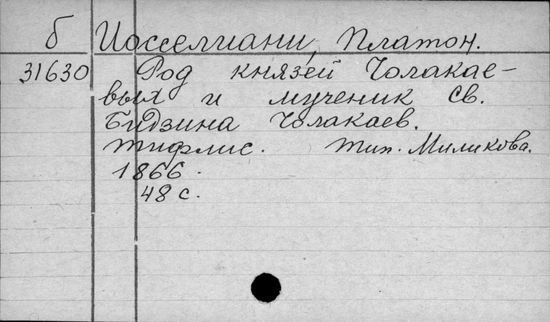 б Иосселиани, Платон.
31630 Род князей Чолакае-
вых и мученик св.
Бидзина Чолакаев.
Тифлис. Тип. Миликова.
1866.
48 с.